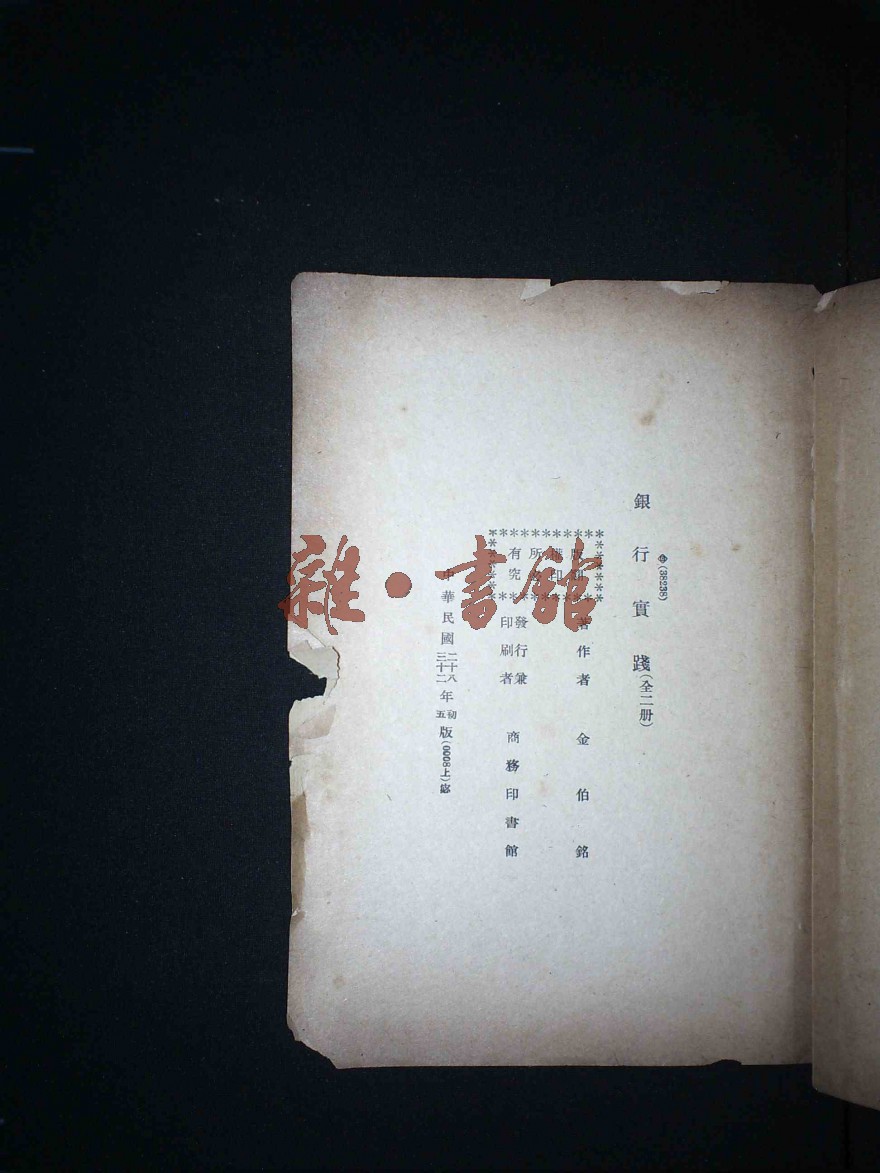 (38238)
銀行實踐(全二册)
著作者 金伯銘
版權所有
翻印必究
發行兼印刷者 商務印書館
中華民國二十八年初版
三十二年五版(0008上)
雜·書館